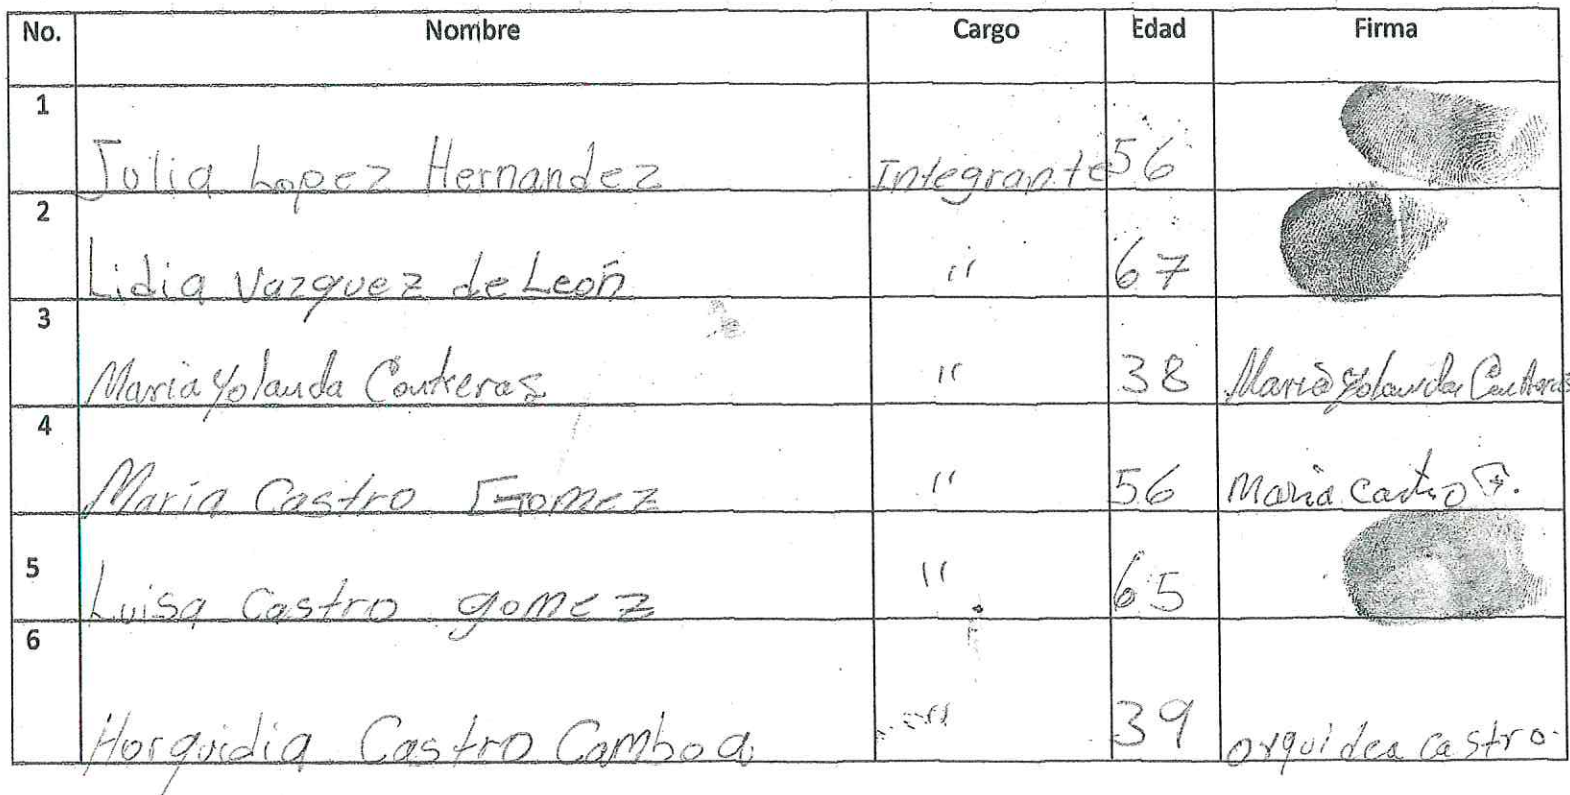 No. Nombre Cargo Edad Firma
1 Julia Lopez Hernandez Integrante 56
2 Lidia Vazquez de León " 67
3 Maria Yolanda Contreras " 38 Maria Yolanda Contreras
4 Maria Castro Gomez " 56 Maria Castro G.
5 Luisa Castro gomez " 65
6 Horquidia Castro Camboa " 39 orquidea castro.